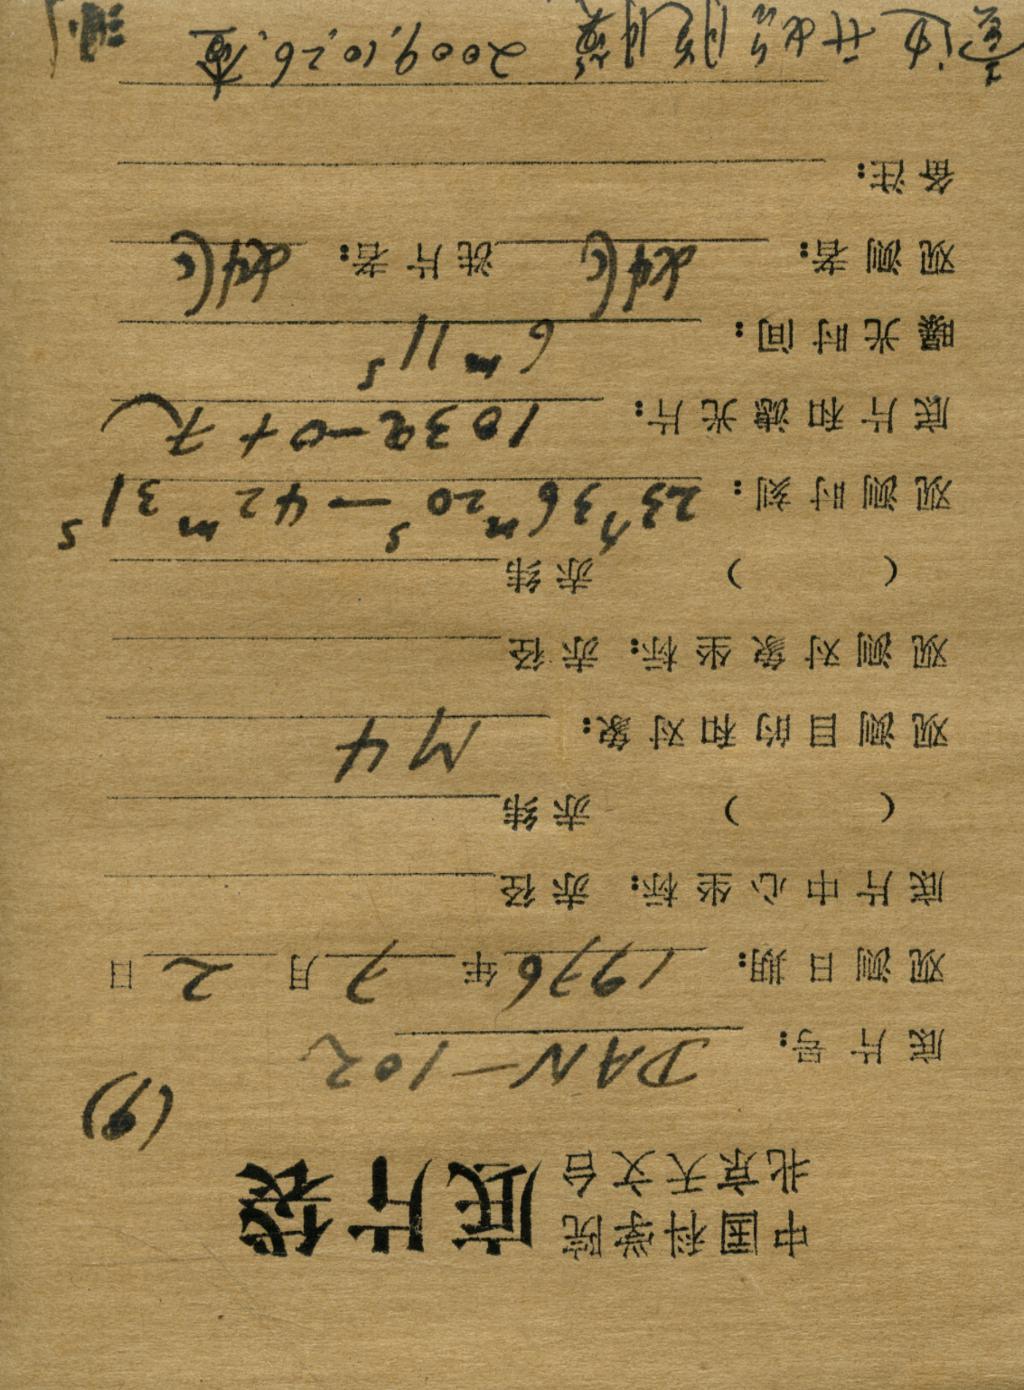 中国科学院
北京天文台
底片袋
(9)
底片号: DAN-102
观测日期: 1976年7月2日
底片中心坐标: 赤径
( ) 赤纬
观测目的和对象: M4
观测对象坐标: 赤径
( ) 赤纬
观测时刻: 23h36m20s—42m31s
底片和滤光片: 103a-O+无
曝光时间: 6m11s
观测者: 洗片者:
备注:
2009.10.26.查